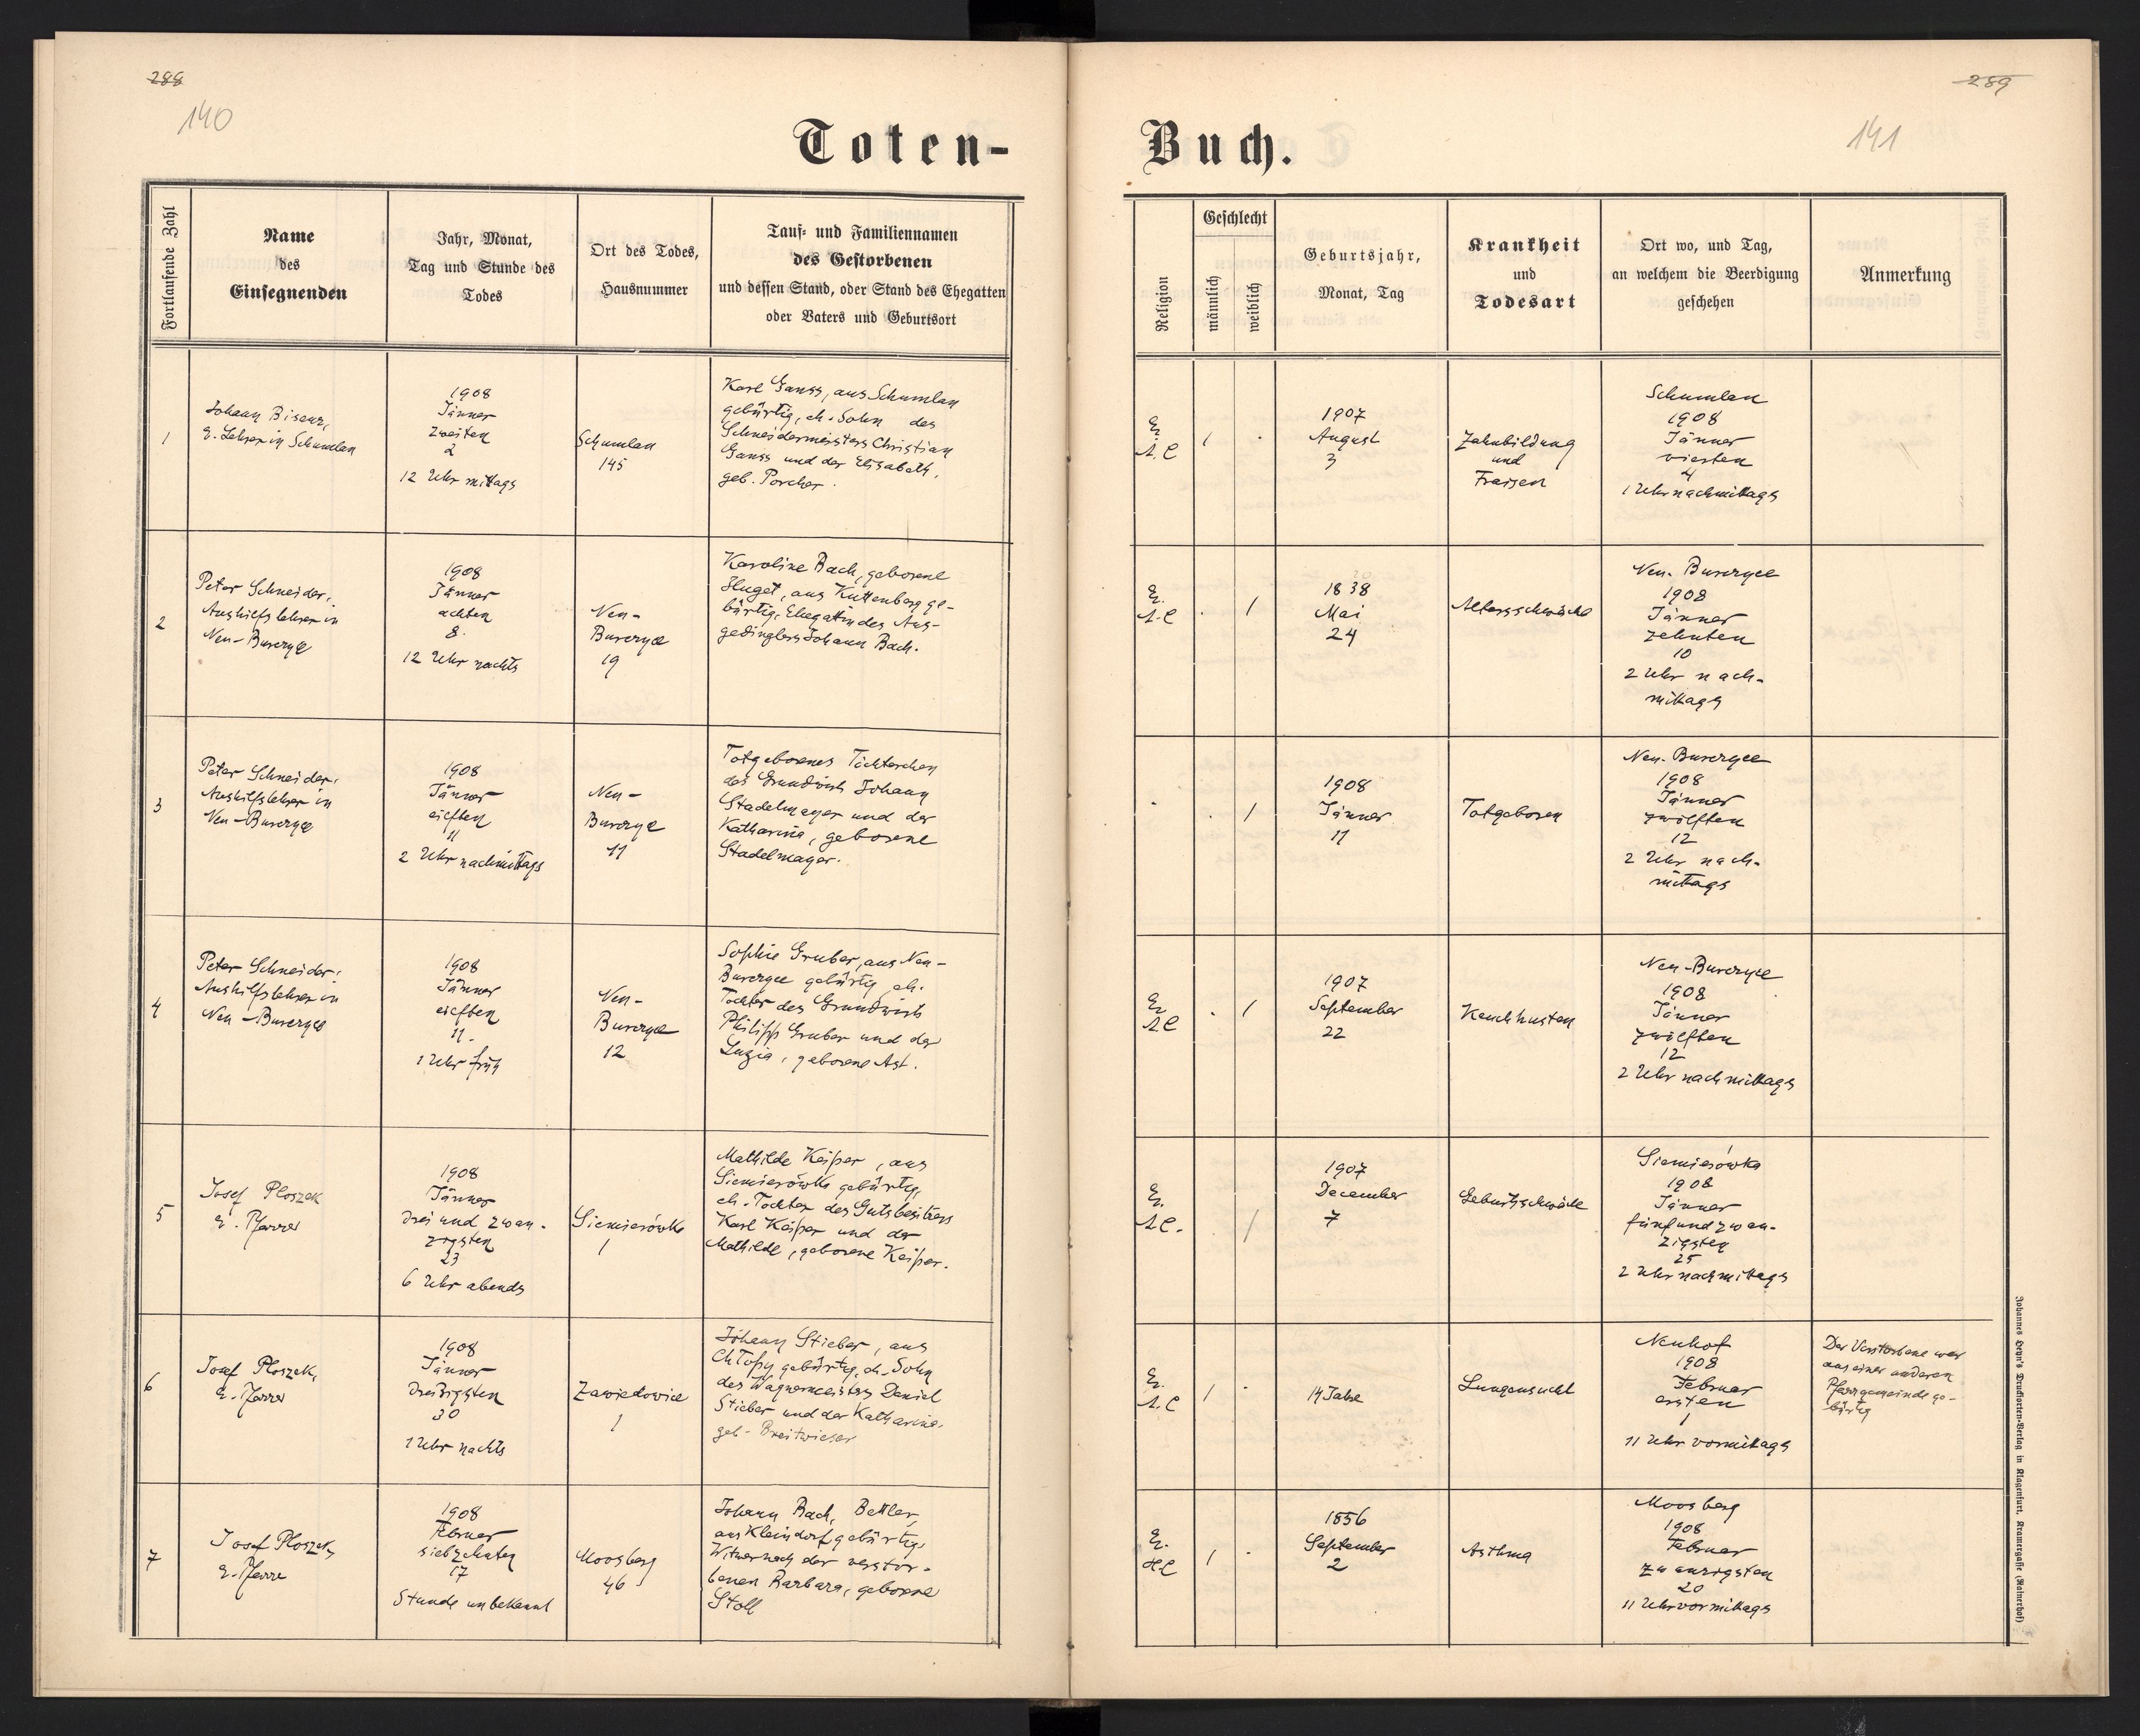 288
140
Toten-
Fortlaufende Zahl
Name
des
Einsegnenden
Jahr, Monat,
Tag und Stunde des
Todes
Ort des Todes,
Hausnummer
Tauf- und Familiennamen
des Gestorbenen
und dessen Stand, oder Stand des Ehegatten
oder Vaters und Geburtsort
1
Johann Bisanz,
E. Lehrer in Schumlau
1908
Jänner
zweiten
2
12 Uhr mittags
Schumlau
145
Karl Ganss, aus Schumlau
gebürtig, eh. Sohn des
Schneidermeisters Christian
Ganss und der Elisabeth,
geb. Porcher.
2
Peter Schneider,
Aushilfslehrer in
Neu-Burczyce
1908
Jänner
achten
8.
12 Uhr nachts
Neu-
Burczyce
19
Karoline Bach, geborene
Huget, aus Kuttenberg ge-
bürtig, Ehegattin des Aus-
gedinglers Johann Bach.
3
Peter Schneider,
Aushilfslehrer in
Neu-Burczyce
1908
Jänner
eilften
11
2 Uhr nachmittags
Neu-
Burczyce
11
Totgeborenes Töchterchen
des Grundwirts Johann
Stadelmayer und der
Katharina, geborene
Stadelmayer.
4
Peter Schneider,
Aushilfslehrer in
Neu-Burczyce
1908
Jänner
eilften
11.
1 Uhr früh
Neu-
Burczyce
12
Sophie Gruber, aus Neu-
Burczyce gebürtig, eh.
Tochter des Grundwirts
Philipp Gruber und der
Luzia, geborene Ast.
5
Josef Ploszek
E. Pfarrer
1908
Jänner
drei und zwan-
zigsten
23
6 Uhr abends
Siemierówka
1
Mathilde Keiper, aus
Siemierówka gebürtig,
eh. Tochter des Gutsbesitzers
Karl Keiper und der
Mathilde, geborene Keiper.
6
Josef Ploszek,
E. Pfarrer
1908
Jänner
dreißigsten
30
1 Uhr nachts
Zawidowice
1
Johann Stieber, aus
Chłopy gebürtig, eh. Sohn
des Wagnermeisters Daniel
Stieber und der Katharina,
geb. Breitwieser
7
Josef Ploszek,
E. Pfarrer
1908
Februar
siebzehnten
17
Stunde unbekannt
Moosberg
46
Johann Bach, Bettler,
aus Kleindorf gebürtig,
Witwer nach der verstor-
benen Barbara, geborene
Stoll
289
141
Buch.
Religion
Geschlecht
männlich
weiblich
Geburtsjahr,
Monat, Tag
Krankheit
und
Todesart
Ort wo, und Tag,
an welchem die Beerdigung
geschehen
Anmerkung
E.
A.C
1
1907
August
3
Zahnbildung
und
Fraisen
Schumlau
1908
Jänner
vierten
4
1 Uhr nachmittags
E.
A.C
1
1838
Mai
24
Altersschwäche
Neu-Burczyce
1908
Jänner
zehnten
10
2 Uhr nach-
mittags
1
1908
Jänner
11
Totgeboren
Neu-Burczyce
1908
Jänner
zwölften
12
2 Uhr nach-
mittags
E.
A.C
1
1907
September
22
Keuchhusten
Neu-Burczyce
1908
Jänner
zwölften
12
2 Uhr nachmittags
E.
A.C.
1
1907
December
7
Geburtsschwäche
Siemierówka
1908
Jänner
fünfundzwan-
zigsten
25
2 Uhr nachmittags
E.
A.C
1
14 Jahre
Lungensucht
Neuhof
1908
Februar
ersten
1
11 Uhr vormittags
Der Verstorbene war
aus einer anderen
Pfarrgemeinde ge-
bürtig
E.
H.C
1
1856
September
2
Asthma
Moosberg
1908
Februar
zwanzigsten
20
11 Uhr vormittags
Johannes Heyn's Drucksorten-Verlag in Klagenfurt, Kramergasse (Rainerhof)